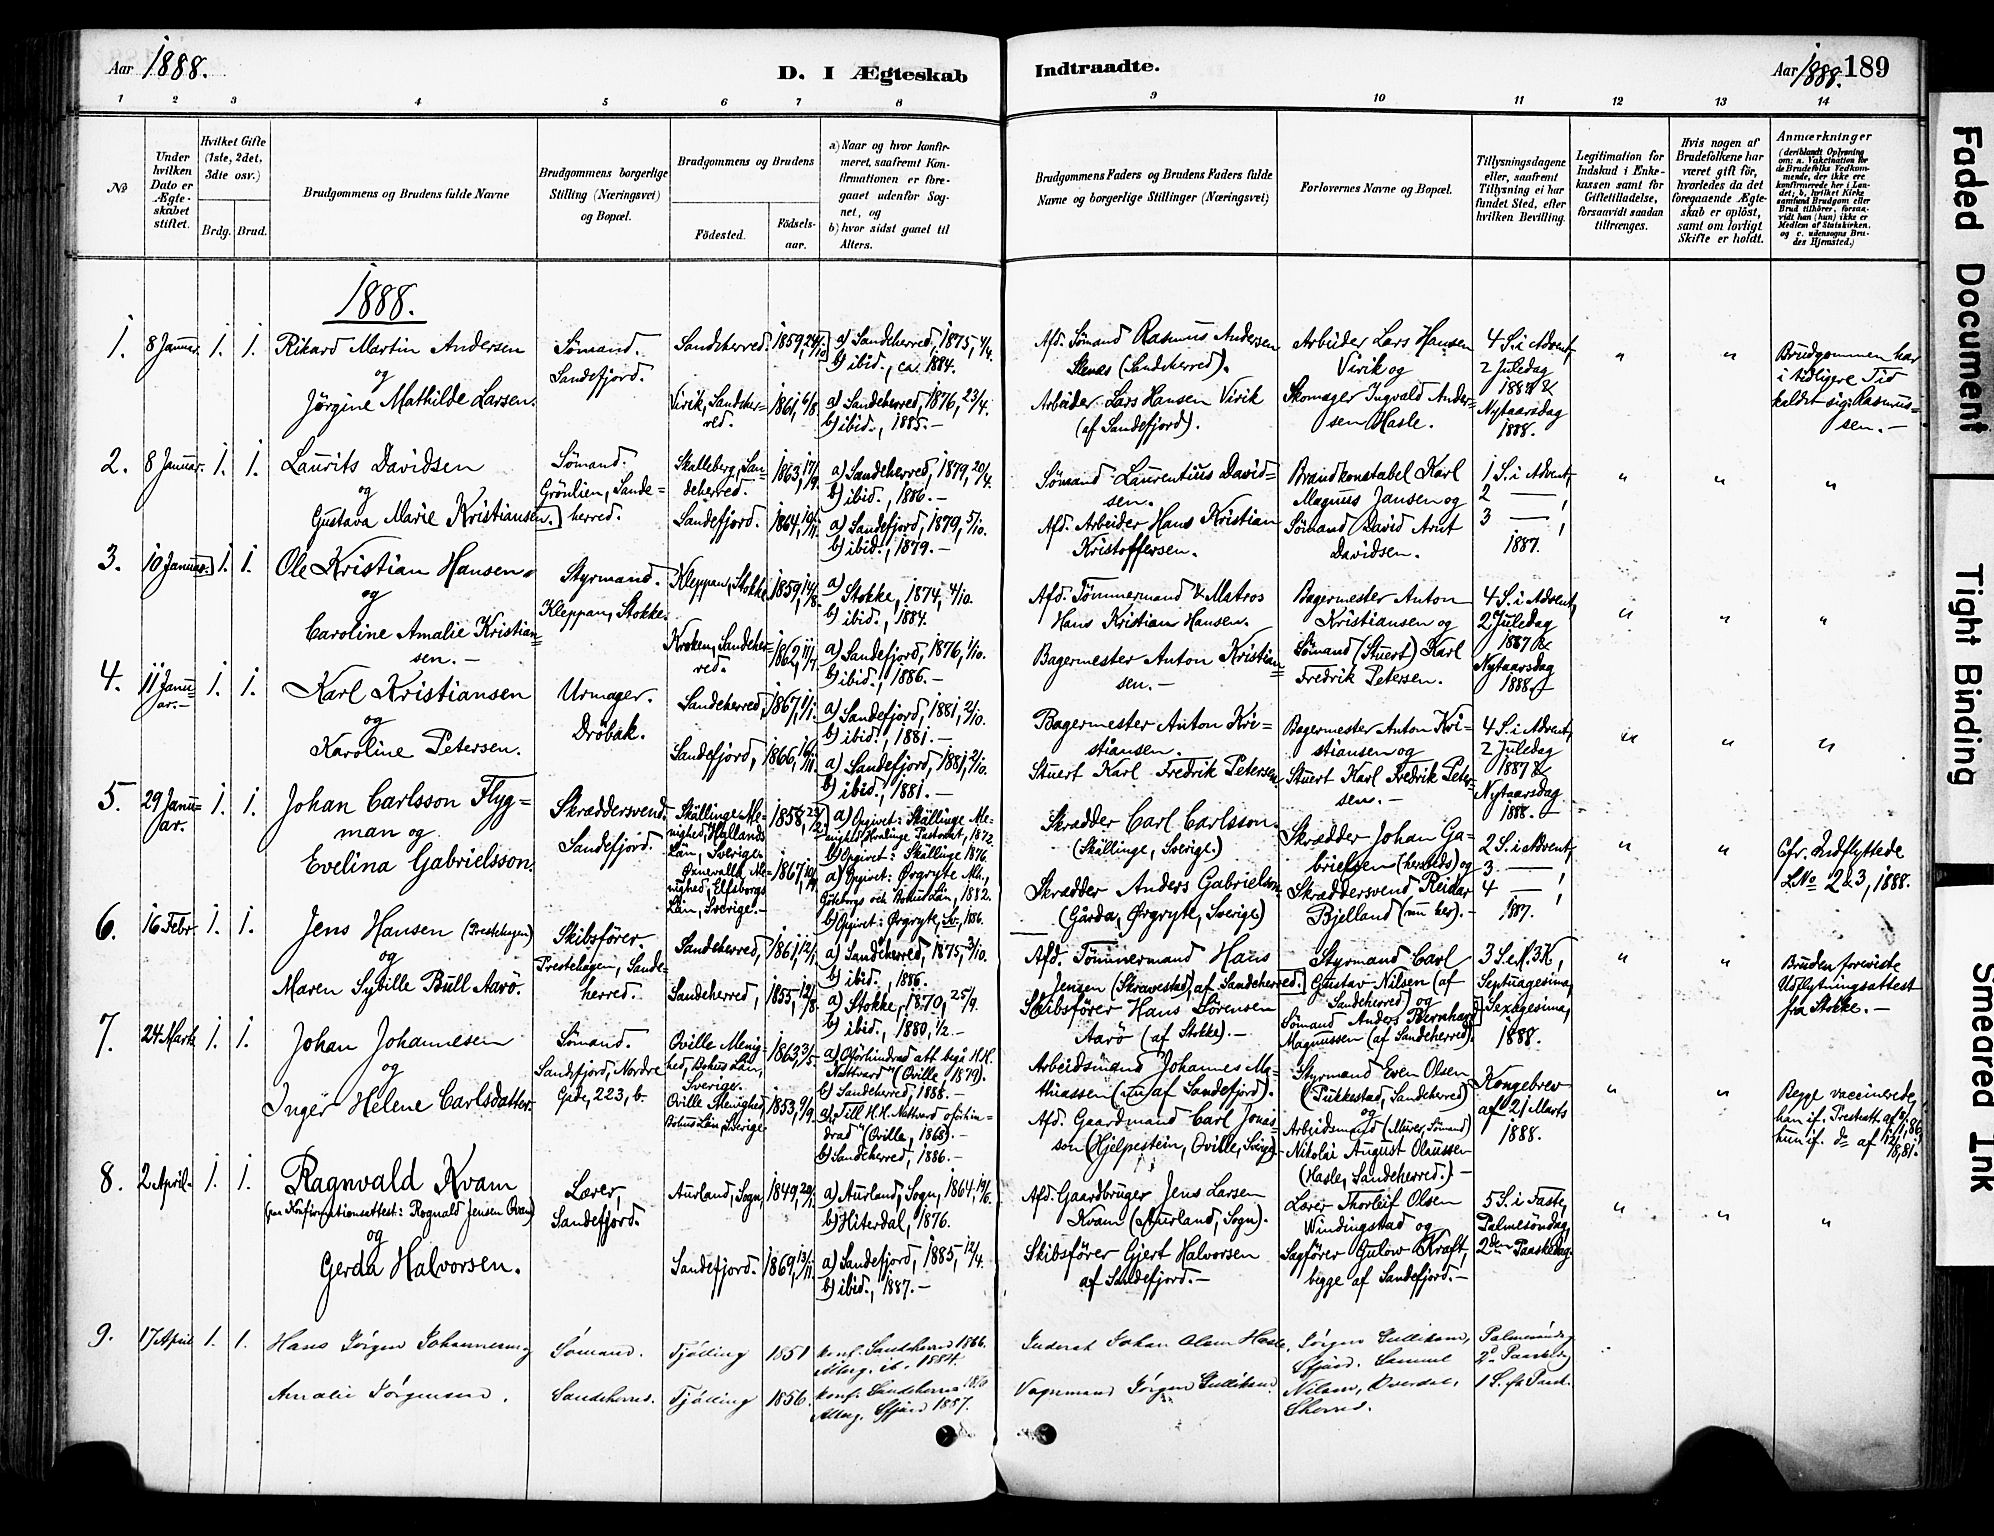 Aar 1888.
D. I Ægteskab Indtraadte.
Aar 1888. 189
1 2 3 4 5 6 7 8 9 10 11 12 13 14
No
Under hvilken Dato er Ægteskabet stiftet.
Hvilket Gifte (1ste, 2det, 3die osv.)
Brdg. Brud.
Brudgommens og Brudens fulde Navne
Brudgommens borgerlige Stilling (Næringsvei) og Bopæl.
Brudgommens og Brudens
Fødested. Fødselsaar.
a) Naar og hvor konfirmeret, saafremt Konfirmationen er foregaaet udenfor Sognet, og
b) hvor sidst gaaet til Alters.
Brudgommens Faders og Brudens Faders fulde Navne og borgerlige Stillinger (Næringsvei)
Forlovernes Navne og Bopæl.
Tillysningsdagene eller, saafremt Tillysning ei har fundet Sted, efter hvilken Bevilling.
Legitimation for Indskud i Enkekassen samt for Giftetilladelse, forsaavidt saadan tiltrænges.
Hvis nogen af Brudefolkene har været gift før, hvorledes da det foregaaende Ægteskab er opløst, samt om lovligt Skifte er holdt.
Anmærkninger
(deriblandt Oplysning om: a. Vakcination for de Brudefolks Vedkommende, der ikke ere konfirmerede her i Landet; b. hvilket Kirkesamfund Brudgom eller Brud tilhører, forsaavidt han (hun) ikke er Medlem af Statskirken, og c. udensogns Brudes Hjemsted.)
1888.
1. 8 Januar. 1. 1. Rikard Martin Andersen
og
Jørgine Mathilde Larsen.
Sømand.
Sandefjord.
Sandeherred. 1859, 24/10
Virik, Sandeherred. 1861, 6/8.
a) Sandeherred, 1875, 4/4.
b) ibid., ca. 1884.
a) Sandeherred, 1876, 23/4.
b) ibid., 1885.-
Afd. Sømand Rasmus Andersen
(Sandeherred).
Arbeider Lars Hansen Virik
(af Sandefjord).
Arbeider Lars Hansen
Virik og
Skomager Ingvald Ander=
sen Hasle.
4 S. i Advent,
2 Juledag
1887 &
Nytaarsdag
1888.
" "
Brudgommen har
i tidligere Tid
kaldt sig: Rasmus=
sen.-
2. 8 Januar. 1. 1. Laurits Davidsen
og
Gustava Marie Kristiansen.
Sømand.
Grönlien, Sande=
herred.
Skalleberg, San=
deherred. 1863, 17/9.
Sandefjord. 1864,
a) Sandeherred, 1879, 20/4.
b) ibid., 1886.-
a) Sandefjord, 1879, 5/10.
b) ibid., 1879.-
Sømand Laurentius David=
sen.
Afd. Arbeider Hans Kristian
Kristoffersen.
Brandkonstabel Karl
Magnus Jansen og
Sømand David Arnt
Davidsen.
1 S. i Advent,
2 — ,
3 — ,
1887.
" " "
3. 10 Januar. 1. 1. Ole Kristian Hansen
og
Caroline Amalie Kristian=
sen.-
Styrmand.
Kleppan, Stokke.
Kleppan, Stokke 1859, 14/8.
Kroken, Sandeher=
red. 1862, 11/7.
a) Stokke, 1874, 4/10.
b) ibid., 1884.
a) Sandefjord, 1876, 1/10.
b) ibid., 1886.-
Afd. Tømmermand & Matros
Hans Kristian Hansen.
Bagermester Anton Kristian=
sen.-
Bagermester Anton
Kristiansen og
Sømand (Stuert) Karl
Fredrik Petersen.
4 S. i Advent,
2 Juledag
1887 &
Nytaarsdag
1888.
" " "
4. 11 Janu=
ar.- 1. 1. Karl Kristiansen
og
Karoline Petersen.
Urmager.
Dröbak.
Sandeherred, 1867, 1/1.
Sandefjord, 1866, 16/11.
a) Sandefjord, 1881, 2/10.
b) ibid., 1881.-
a) Sandefjord, 1881, 2/10.
b) ibid., 1881.-
Bagermester Anton Kri=
stiansen.
Stuert Karl Fredrik Petersen.
Bagermester Anton Kri=
stiansen og
Stuert Karl Fredrik Peter=
sen.-
4 S. i Advent,
2 Juledag
1887 &
Nytaarsdag
1888.-
" " "
5. 29 Janu=
ar. 1. 1. Johan Carlsson Flyg=
man og
Evelina Gabrielsson.
Skraddersvend.
Sandefjord.
Skällinge Me=
nighed, Hallands
Län, Sverige. 1858,
Menighed, Elfsborgs
Län, Sverige.- 1867,
a) Opgivet: Skällinge Me=
nighed, Pastorat, 1872.
b) Opgivet: Skällinge 1876.
a) Opgivet: Örgryte Me.,
Göteborgs och Bohus Län, 1882.
b) Opgivet: Örgryte, Sv., 1886.
Skradder Carl Carlsson
(Skällinge, Sverige.)
Skradder Anders Gabrielson
(Gårda, Örgryte, Sverige)
Skradder Johan Ga=
brielsen (herst&ds) og
Skraddersvend Reidar
Bjelland (nu her).-
2 S. i Advent,
3 —
4 — ,
1887.
" "
Cfr. Indflyttede
LNo 2 & 3, 1888.
6. 16 Febr. 1. 1. Jens Hansen (Prestehagen)
og
Maren Sybille Bull Aarö.
Skibsfører.
Prestehagen, Sande=
herred.
Sandeherred, 1861, 12/1.
Sandeherred, 1855, 12/8.
a) Sandeherred, 1875, 3/10.
b) ibid., 1886.
a) Stokke, 1870, 25/9.
b) ibid., 1880, 1/2.-
Afd. Tømmermand Hans
Jensen (Skravestad), af Sandeherred.
Skibsfører Hans Sörensen
Aarö (af Stokke).-
Styrmand Carl
Gustav Nilsen (af
Sandeherred) og
Sømand Anders Bernhard
Magnussen (af Sandeherred).
3 S. e. H. 3 K,
Septuagesima,
Sexagesima,
1888.
" "
Bruden foreviste
Udflytningsattest
fra Stokke.-
7. 24 Marts 1. 1. Johan Johannesen
og
Inger Helene Carlsdatter.
Sømand.
Sandefjord, Nordre
Gade, 223, b.
Oville Menig=
hed, Bohus Län,
Sverige. 1863, 3/5.
Oville Menighed,
Bohus Län, Sverige. 1853, 9/9.
a) "Oförhindrad att begå H.H.
Nattvard" (Oville 1879).
b) Sandeherred, 1888.-
a) "Till H.H. Nattvard oförhin=
drad" (Oville, 1868).-
b) Sandeherred, 1886.-
Arbeidsmand Johannes Ma=
thiassen (nu af Sandefjord).
Afd. Gaardmand Carl Jonas=
son (Hjelpestein, Oville, Sverige)-
Styrmand Even Olsen
(Pukkestad, Sandeherred)
og
Arbeidsmand (Murer, Sömand)
Nikolai August Olaussen
(Hasle, Sandeherred.)-
Kongebrev
af 21 Marts
1888.
" "
Begge vaccinerede,
han if. Prestatt. af
hun if. do af
8. 2 April. 1. 1. Ragnvald Kvam
(paa Konfirmationsattest: Rognald Jensen Qvam)
og
Gerda Halvorsen.
Lærer,
Sandefjord.
Aurland, Sogn, 1849,
Sandefjord. 1869, 13/11.
a) Aurland, Sogn, 1864, 19/6.
b) Hiterdal, 1876.
a) Sandefjord, 1885, 12/4.
b) ibid., 1887.-
Afd. Gaardbruger Jens Larsen
Kvam (Aurland, Sogn).
Skibsfører Gjert Halvorsen
af Sandefjord.-
Lærer Thorleif Olsen
Windingstad og
Sagfører Gulow Kraft,
begge af Sandefjord.-
5 S. i Faste,
Palmesöndag,
2den Paaskedag.
" " "
9. 17 April 1. 1. Hans Jørgen Johannesen og
Amalie Jørgensen.
Sömand.
Sandeherred.
Tjölling 1851
Tjölling 1856.
konf. Sandeherred 1866.
Altrg. ib. 1884.
konf. Sandeherred
Altrg. Sfjord 1887.
Inderst Johan Olsen Hasle,
Vognmand Jørgen Gulliksen
Jørgen Gulliksen,
Sfjord. Samuel
Nilsen,
Sherred.
Palmesöndag
2den Paaskedag
1 S. e. Paask.
Faded Document
Tight Binding
Smeared Ink